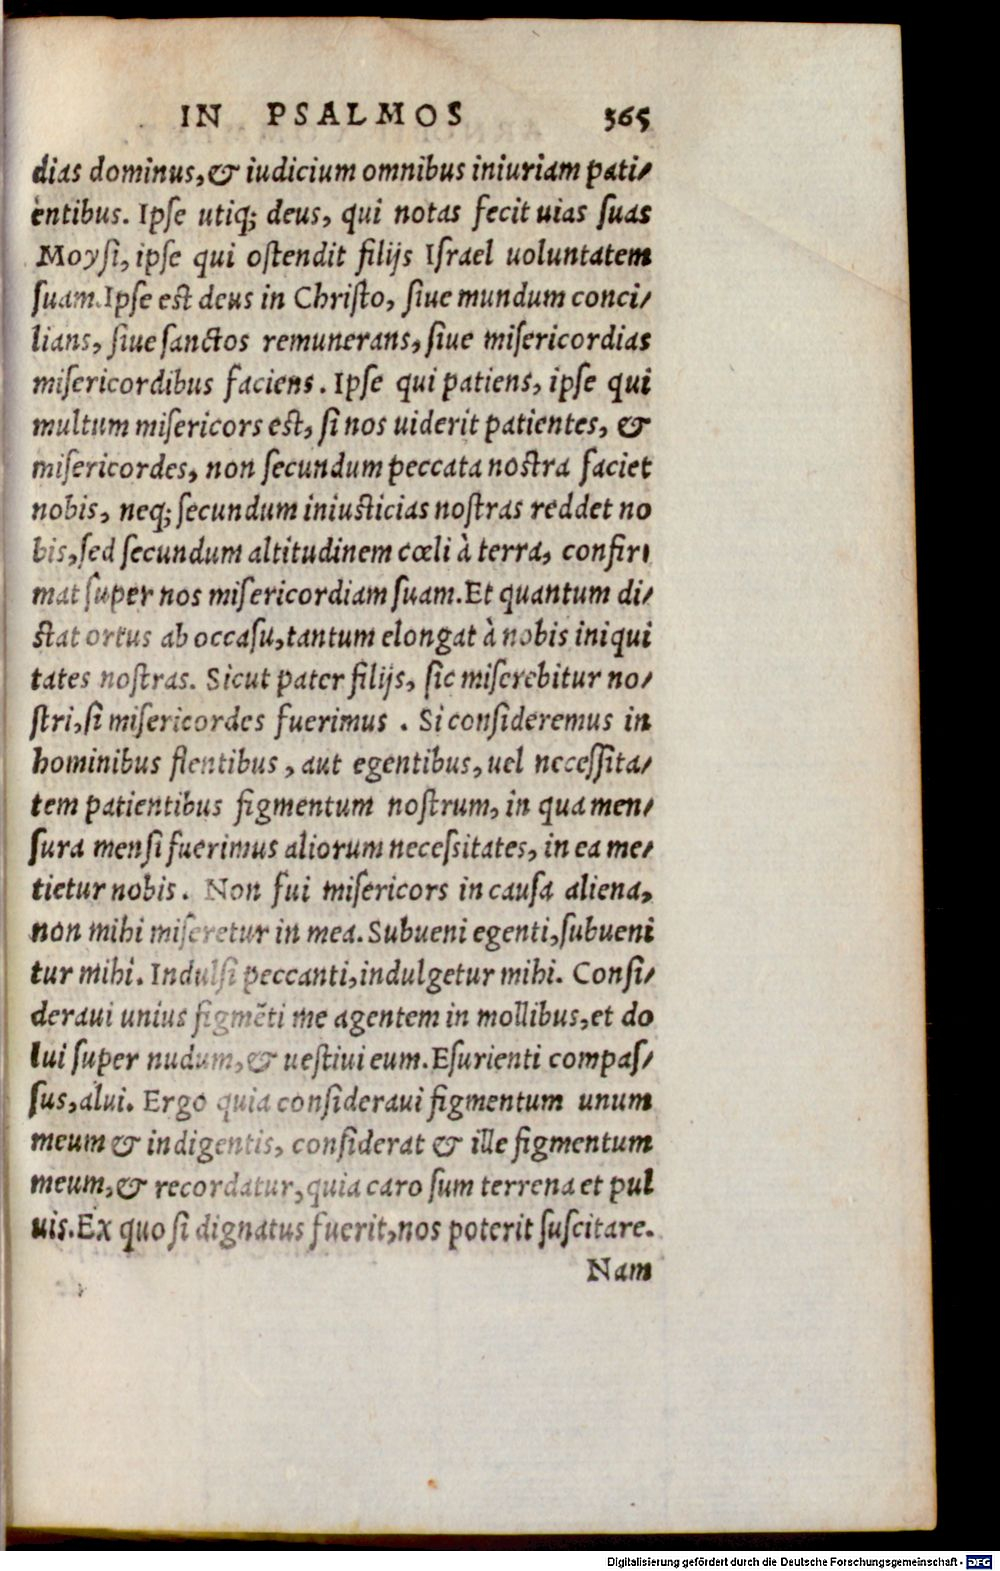 IN PSALMOS 365
dias dominus, & iudicium omnibus iniuriam pati/
entibus. Ipse utiq; deus, qui notas fecit uias suas
Moysi, ipse qui ostendit filijs Israel uoluntatem
suam. Ipse est deus in Christo, siue mundum conci/
lians, siue sanctos remunerans, siue misericordias
misericordibus faciens. Ipse qui patiens, ipse qui
multum misericors est, si nos uiderit patientes, &
misericordes, non secundum peccata nostra faciet
nobis, neq; secundum iniusticias nostras reddet no
bis, sed secundum altitudinem cœli à terra, confir/
mat super nos misericordiam suam. Et quantum di/
stat ortus ab occasu, tantum elongat à nobis iniqui
tates nostras. Sicut pater filijs, sic miserebitur no/
stri, si misericordes fuerimus . Si consideremus in
hominibus flentibus, aut egentibus, uel necessita/
tem patientibus figmentum nostrum, in qua men/
sura mensi fuerimus aliorum necessitates, in ea me/
tietur nobis. Non fui misericors in causa aliena,
non mihi miseretur in mea. Subueni egenti, subueni
tur mihi. Indulsi peccanti, indulgetur mihi. Consi/
deraui unius figmẽti me agentem in mollibus, et do
lui super nudum, & uestiui eum. Esurienti compas/
sus, alui. Ergo quia consideraui figmentum unum
meum & indigentis, considerat & ille figmentum
meum, & recordatur, quia caro sum terrena et pul
uis. Ex quo si dignatus fuerit, nos poterit suscitare.
Nam
Digitalisierung gefördert durch die Deutsche Forschungsgemeinschaft - DFG